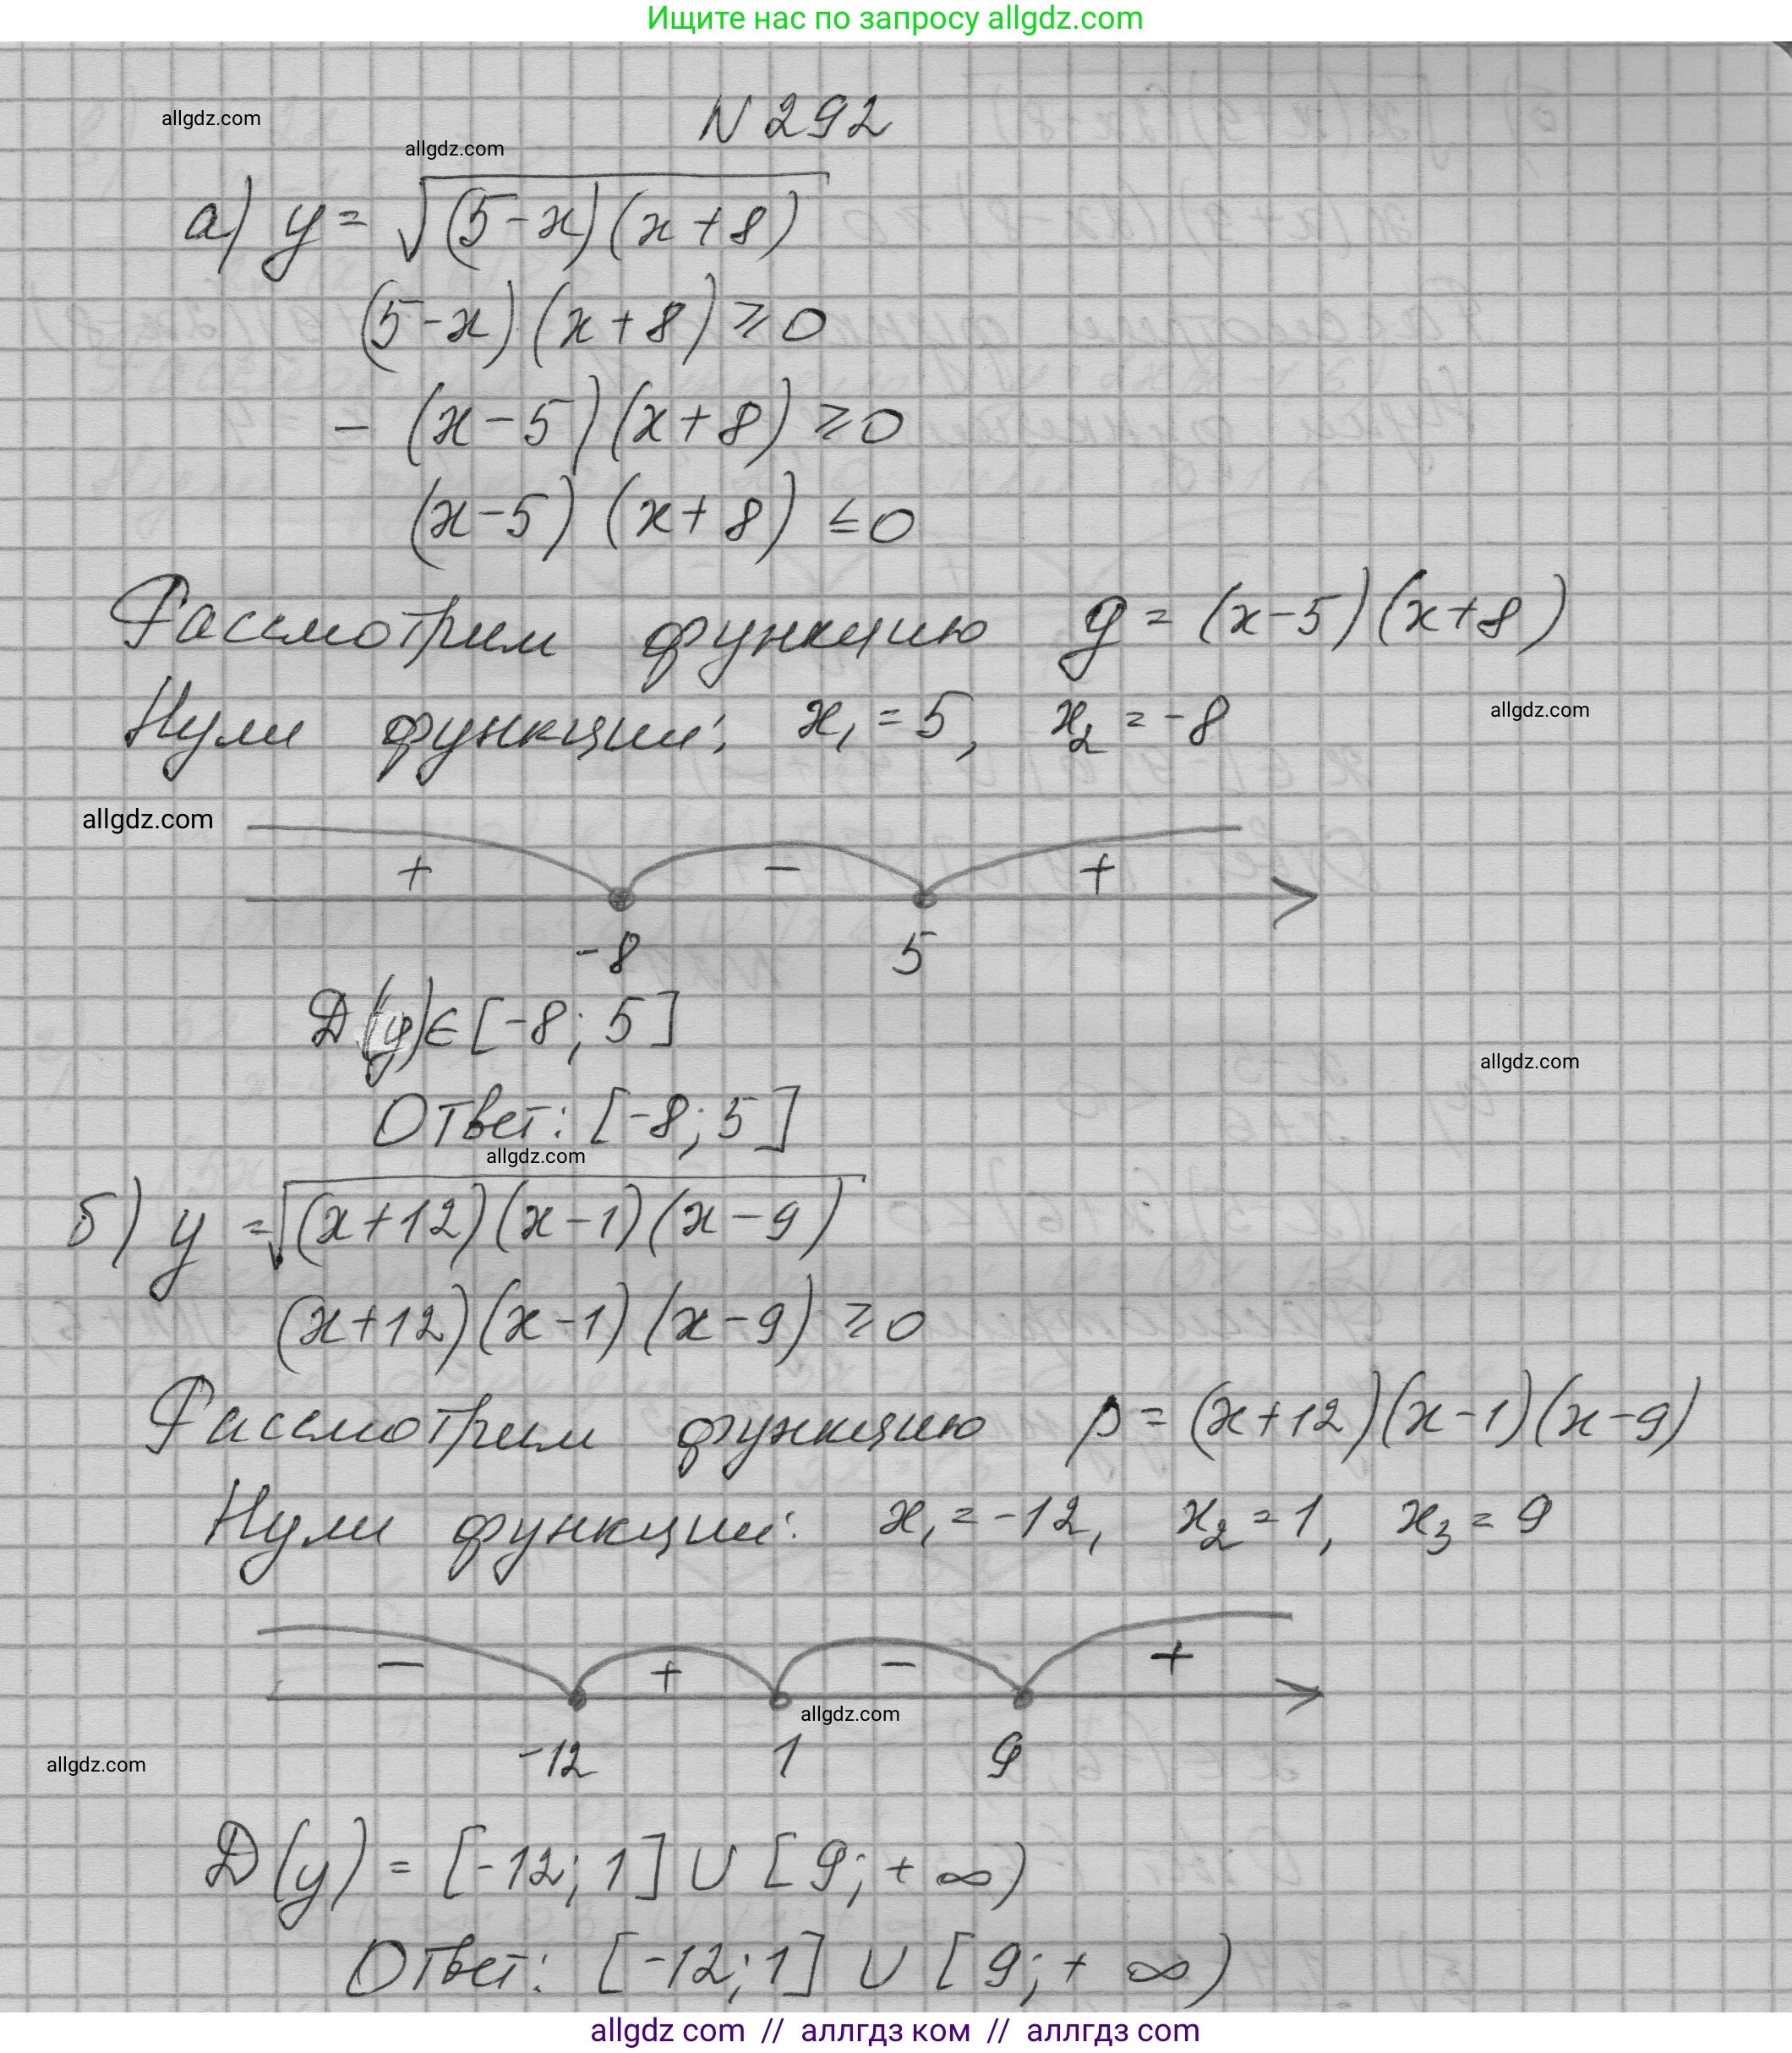 Ищите нас по запросу allgdz.com
N 292
allgdz.com
allgdz.com
а) y = √(5-x)(x+8)
(5-x)(x+8) ≥ 0
- (x-5)(x+8) ≥ 0
(x-5)(x+8) ≤ 0
Рассмотрим функцию y = (x-5)(x+8)
Нули функции: x₁ = 5, x₂ = -8
allgdz.com
allgdz.com
+ - +
-8 5
D(y) ∈ [-8; 5]
allgdz.com
Ответ: [-8; 5]
allgdz.com
б) y = √(x+12)(x-1)(x-9)
(x+12)(x-1)(x-9) ≥ 0
Рассмотрим функцию p = (x+12)(x-1)(x-9)
Нули функции: x₁ = -12, x₂ = 1, x₃ = 9
- + - +
allgdz.com
-12 1 9
allgdz.com
D(y) = [-12; 1] ∪ [9; + ∞)
Ответ: [-12; 1] ∪ [9; + ∞)
allgdz com // аллгдз ком // аллгдз com